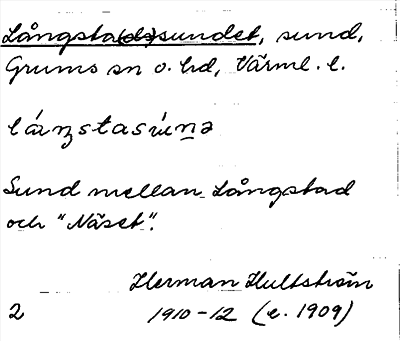 Långsta(ds)sundet, sund,
Grums sn o. hd, Värml. l.
låŋstasúnə
Sund mellan Långstad
och "Näset".
Herman Hultström
2 1910-12 (e. 1909)